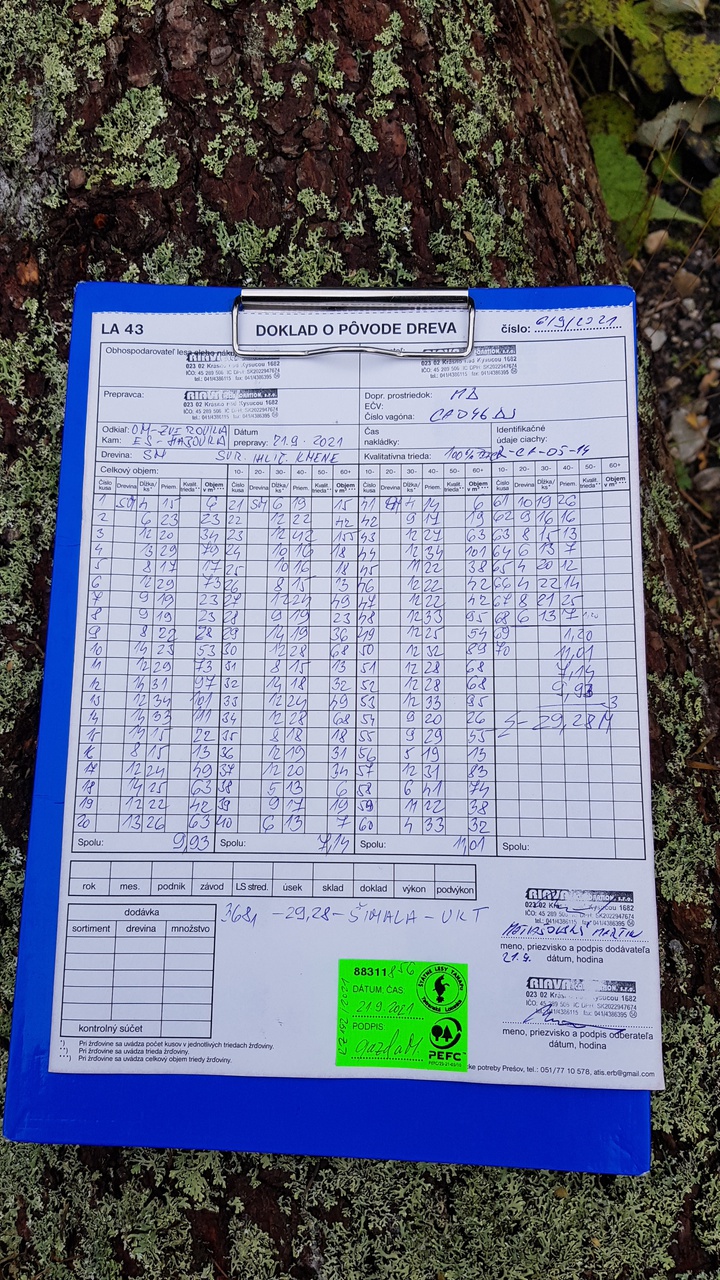 LA 43
DOKLAD O PÔVODE DREVA
číslo: 6/9/2021
Obhospodarovateľ lesa
023 02 Krásno nad Kysucou 1682
IČO: 45 289 506 IČ DPH: SK2022947674
tel.: 041/4386115 fax: 041/4386395
Prepravca:
023 02 Krásno nad Kysucou 1682
IČO: 45 289 506 IČ DPH: SK2022947674
tel.: 041/4386115 fax: 041/4386395
Dopr. prostriedok:
EČV:
Číslo vagóna:
Odkiaľ:
Kam:
Dátum
prepravy: 21.9.2021
Čas
nakládky:
Identifikačné
údaje ciachy:
Drevina: SM SUR. IHLIČ. KMENE
Kvalitatívna trieda: 100%
Celkový objem: 10- 20- 30- 40- 50- 60+ 10- 20- 30- 40- 50- 60+ 10- 20- 30- 40- 50- 60+
Číslo kusa Drevina Dĺžka/ks* Priem. Kvalit. trieda** Objem v m³***
1 SM 4 15 6 21 SM 6 19 15 41 SM 4 14 6 61 10 19 26
2 6 23 23 22 12 22 42 42 9 17 19 62 9 16 16
3 12 20 34 23 12 42 155 43 12 27 63 63 8 15 13
4 13 29 79 24 10 16 18 44 12 34 101 64 6 13 7
5 8 17 17 25 10 16 18 45 11 22 38 65 4 20 12
6 12 29 73 26 8 15 13 46 12 22 42 66 4 22 14
7 9 19 23 27 12 24 49 47 12 22 42 67 8 21 25
8 9 19 23 28 9 19 23 48 12 33 95 68 6 13 7
9 8 22 28 29 14 19 36 49 12 25 54 69 1,20
10 14 23 53 30 12 28 68 50 12 32 89 70 11,01
11 12 29 73 31 8 15 13 51 12 28 68 7,14
12 14 31 97 32 14 18 32 52 12 28 68 9,93
13 12 34 101 33 12 24 49 53 12 33 95
14 14 33 111 34 12 28 68 54 9 20 26 S-29,28 M3
15 14 15 22 35 8 18 18 55 9 29 55
16 8 15 13 36 12 19 31 56 5 19 13
17 12 24 49 37 12 20 34 57 12 31 83
18 14 25 63 38 5 13 6 58 6 41 74
19 12 22 42 39 9 17 19 59 11 22 38
20 13 26 63 40 6 13 7 60 4 33 32
Spolu: 9,93 Spolu: 7,14 Spolu: 11,01 Spolu:
rok mes. podnik závod LS stred. úsek sklad doklad výkon podvýkon
3681 -29,28-ŠIMALA-UKT
dodávka
sortiment drevina množstvo
kontrolný súčet
RIAVA
023 02
IČO: 45 289 506 IČ DPH: SK2022947674
meno, priezvisko a podpis dodávateľa
21.9. dátum, hodina
RIAVA
023 02 Krásno nad Kysucou 1682
meno, priezvisko a podpis odberateľa
dátum, hodina
88311856
DÁTUM, ČAS
21.9.2021
PODPIS
ŠTÁTNE LESY TANAPu
PEFC
*) Pri žrďovine sa uvádza počet kusov v jednotlivých triedach žrďoviny.
**) Pri žrďovine sa uvádza trieda žrďoviny.
***) Pri žrďovine sa uvádza celkový objem triedy žrďoviny.
potreby Prešov, tel.: 051/77 10 578, atis.erb@gmail.com